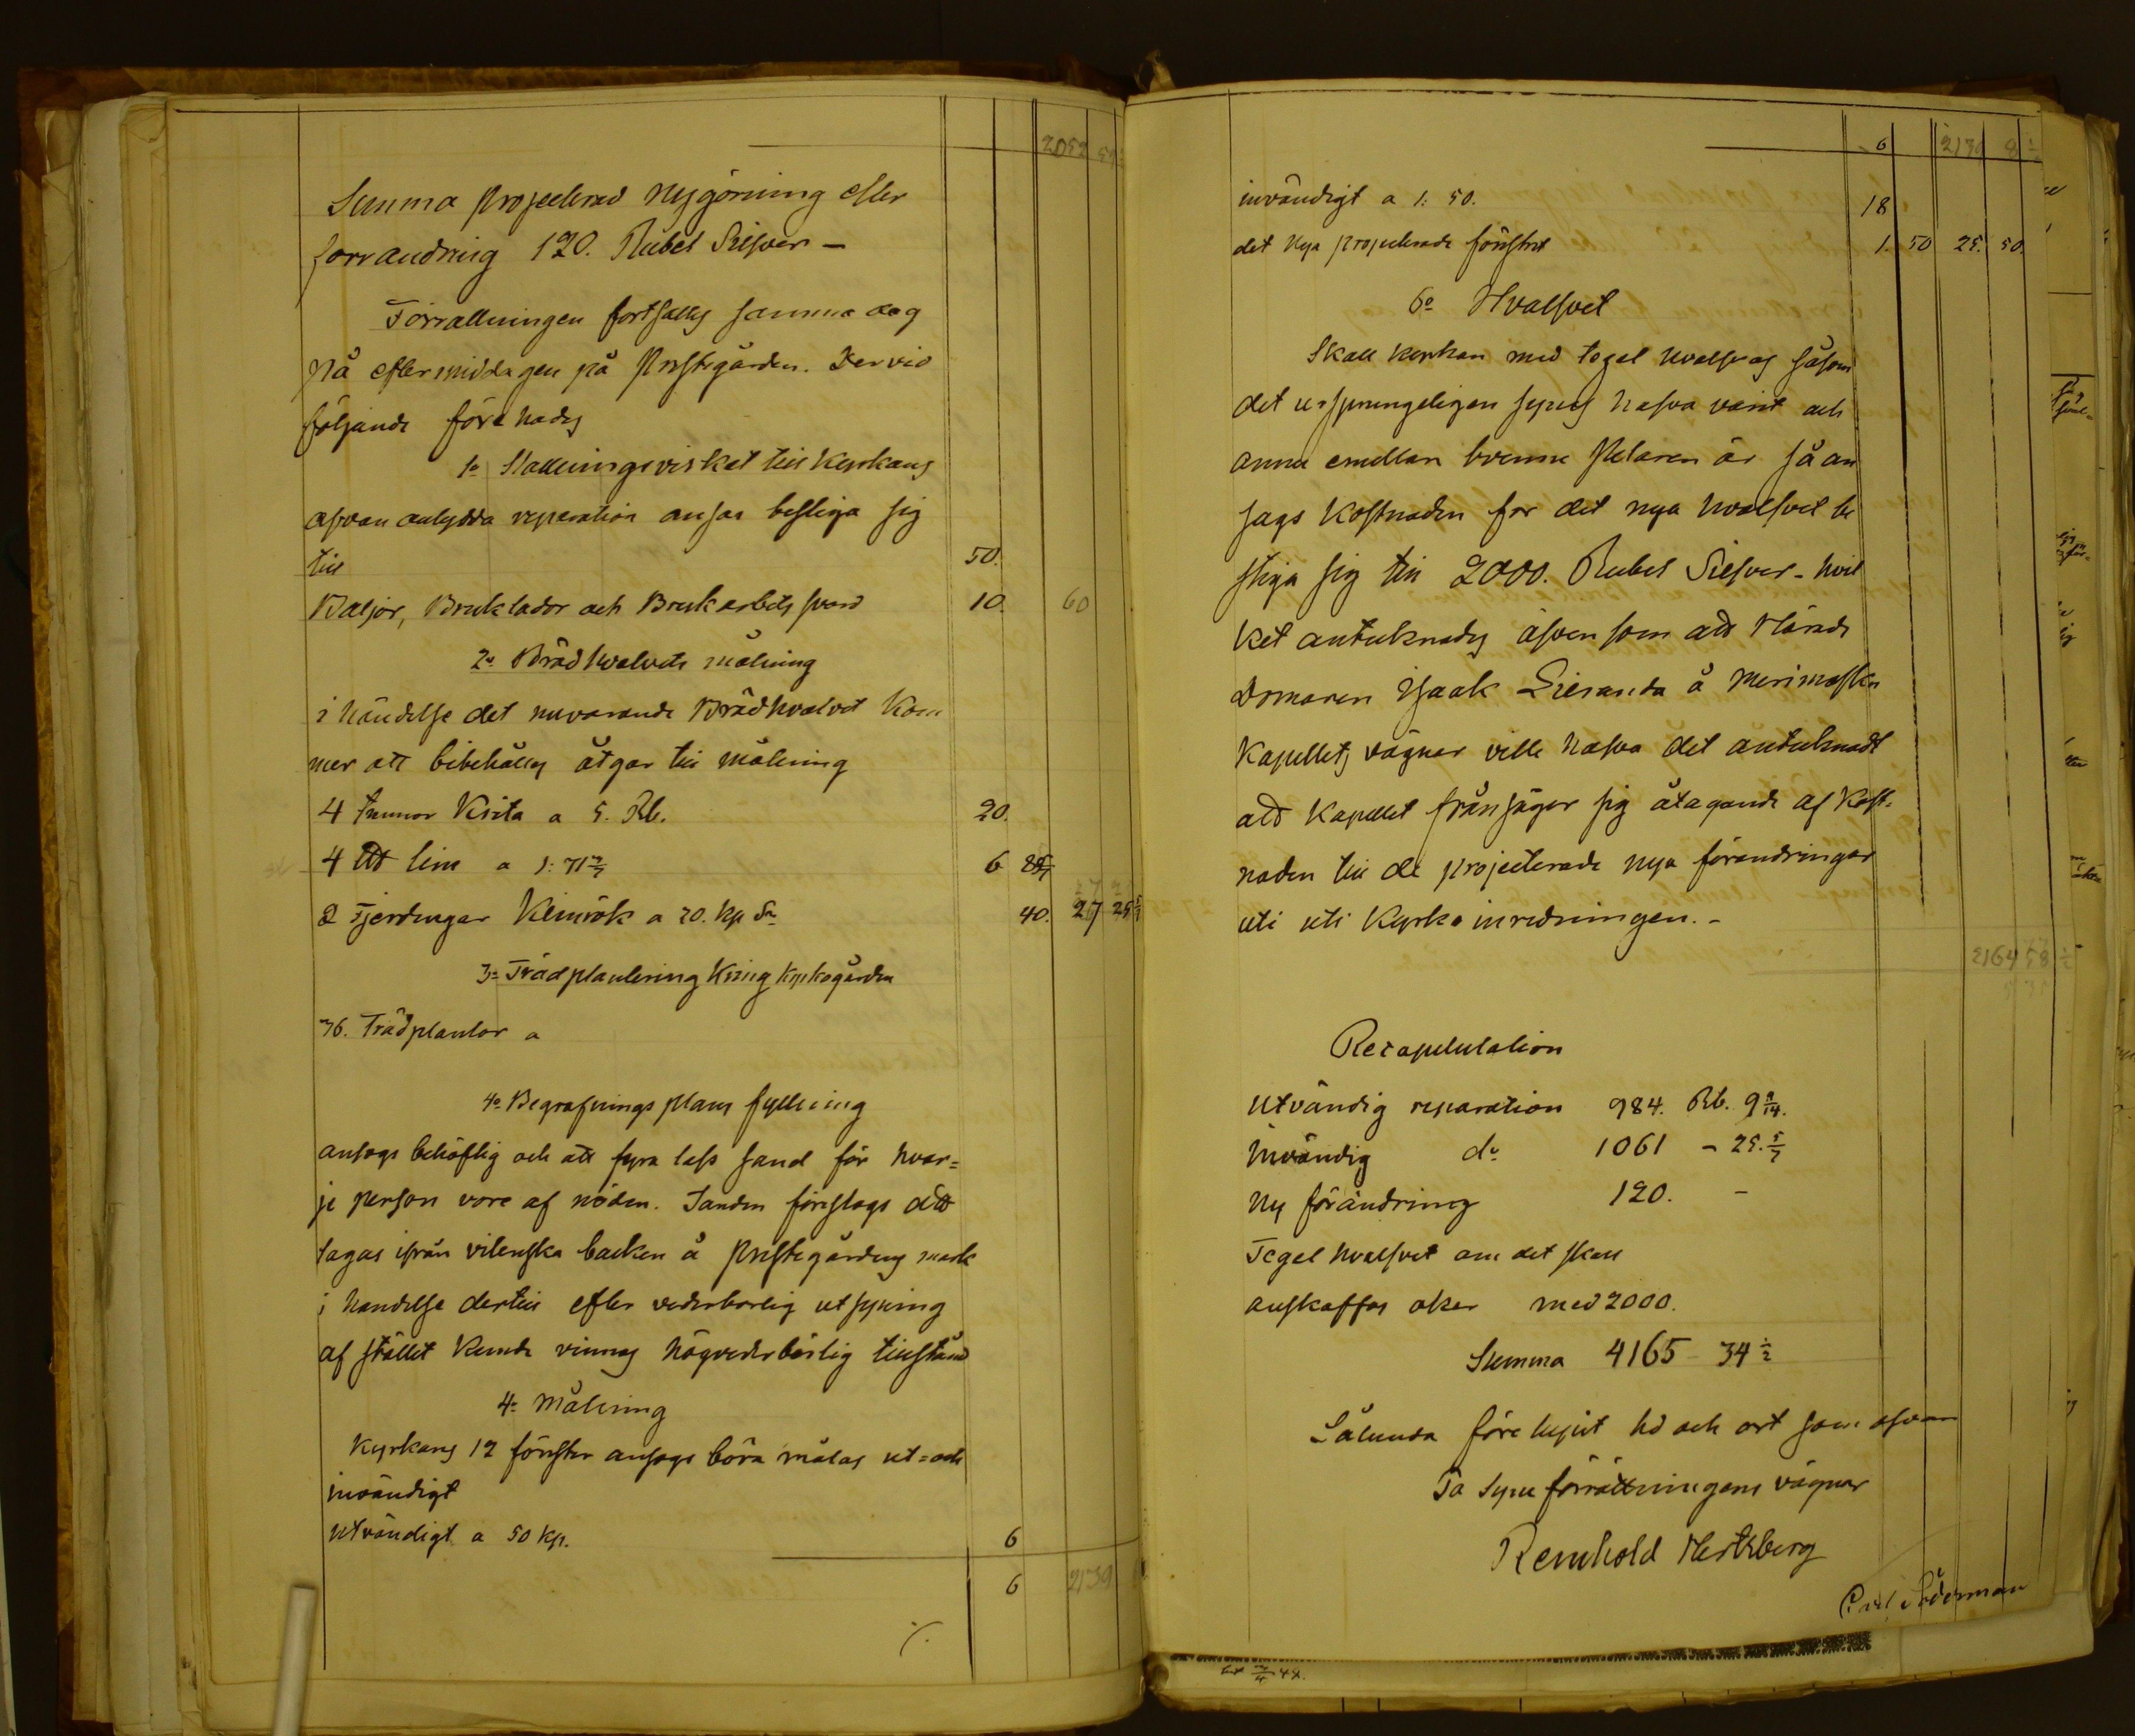 2052
Summa projecterad nygörning eller
förrandring 120. Rubel Silfver –
Förrattningen fortsattes samma dag
på eftermiddagen på Prestegården. Dervid
följande förehades
1o Stallningsvirket till Kyrkans
ofvan antydda reparation anses bestiga sig
till 50.
Baljor, Bruklador och Brukarbets 10. 60
2o Brädhvalvets målning
i händelse det nuvarande Brädhvalvet kom
mer att bibehålles åtgår till målning
4 tunnor Krita a 5. Rb. 20.
4 lim a 1: 71 3/7 6
2 Fjerdingar Kimrök a 20. kp Sr 40. 27 25 5/7
3o Trädplantering kring kyrkogården
36. Trädplantor a
4o Begrafnings plans fyllning
ansogs behöflig och att fyra lass sand för hvar=
je person vore af nöden. Sanden föreslogs att
tagas ifrån backen å Prestegårdens mark
i handelse dertill efter vederborlig utsyning
af stället kunde vinnas högvederbörlig tillstånd
4o Målning
Kyrkans 12 fönster ansogs böra målas ut= och
invändigt
utvändigt a 50 kp. 6
6 2139
./.
6 213 8 1/2
invändigt a 1: 50. 18
det nya projecterade fönstret 1. 50 25. 50.
6o Hvalfvet
Skall kyrkan med tegel hvalfvas såsom
det ursprungeligen synes hafva varit och
annu emellan trenne Pelaren är så an
sags kostnaden for det nya hvalfvet be
stiga sig till 2000. Rubel Silfver – hvil
ket antecknades äfven som att Härads
Domaren Isaak Lieranta å Merimasku
Kapellets vägnar ville hafva det antecknadt
att Kapellet frånsäger sig åtagande af kost=
naden till de projecterade nya förandringar
uti uti Kyrko inredningen. –
2164 58 1/2
Recapitulation
Utvändig reparation 984. Rb. 9 11/14.
Invändig do 1061 – 25. 5/7
Ny förändring 120. –
Tegel hvalfvet om det skall
anskaffas oker med 2000.
Summa 4165 – 34 1/2
Sålunda förelupit tid och ort som ofvan
På Syneförrättningens vägnar
Reinhold Hertzberg
Carl Söderman